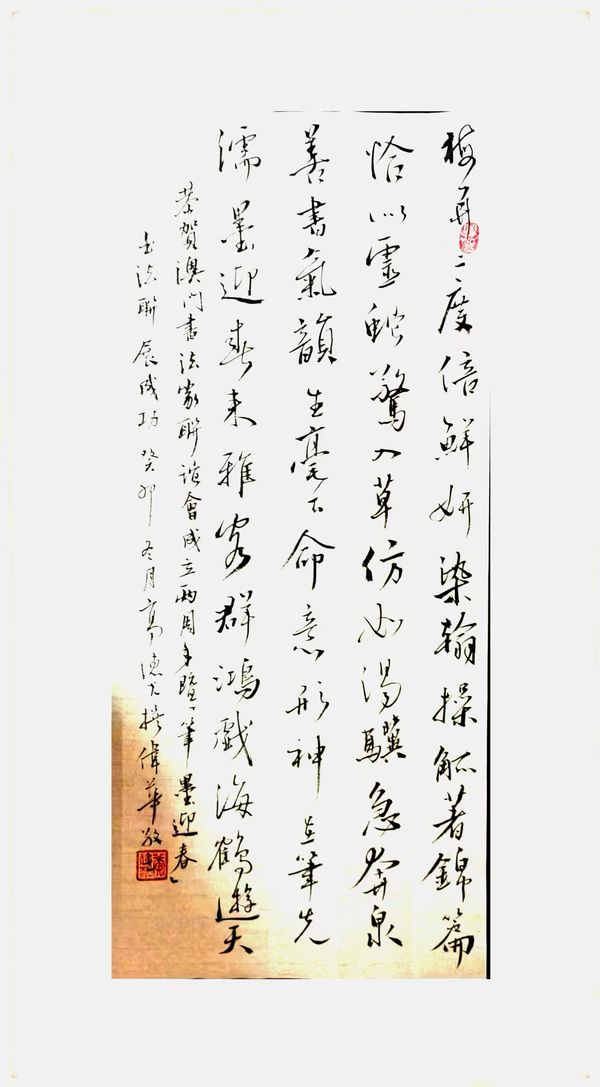 梅開二度倍鮮妍染翰操觚著錦篇
恰似靈蛇驚入草仿如渴驥急奔泉
善書氣韻生毫下命意形神在筆先
濡墨迎春來雅客群鴻戲海鶴遊天
恭賀澳門書法家聯誼會成立兩周年暨「筆墨迎春」
書法聯展成功癸卯冬月高德大撰偉華敬